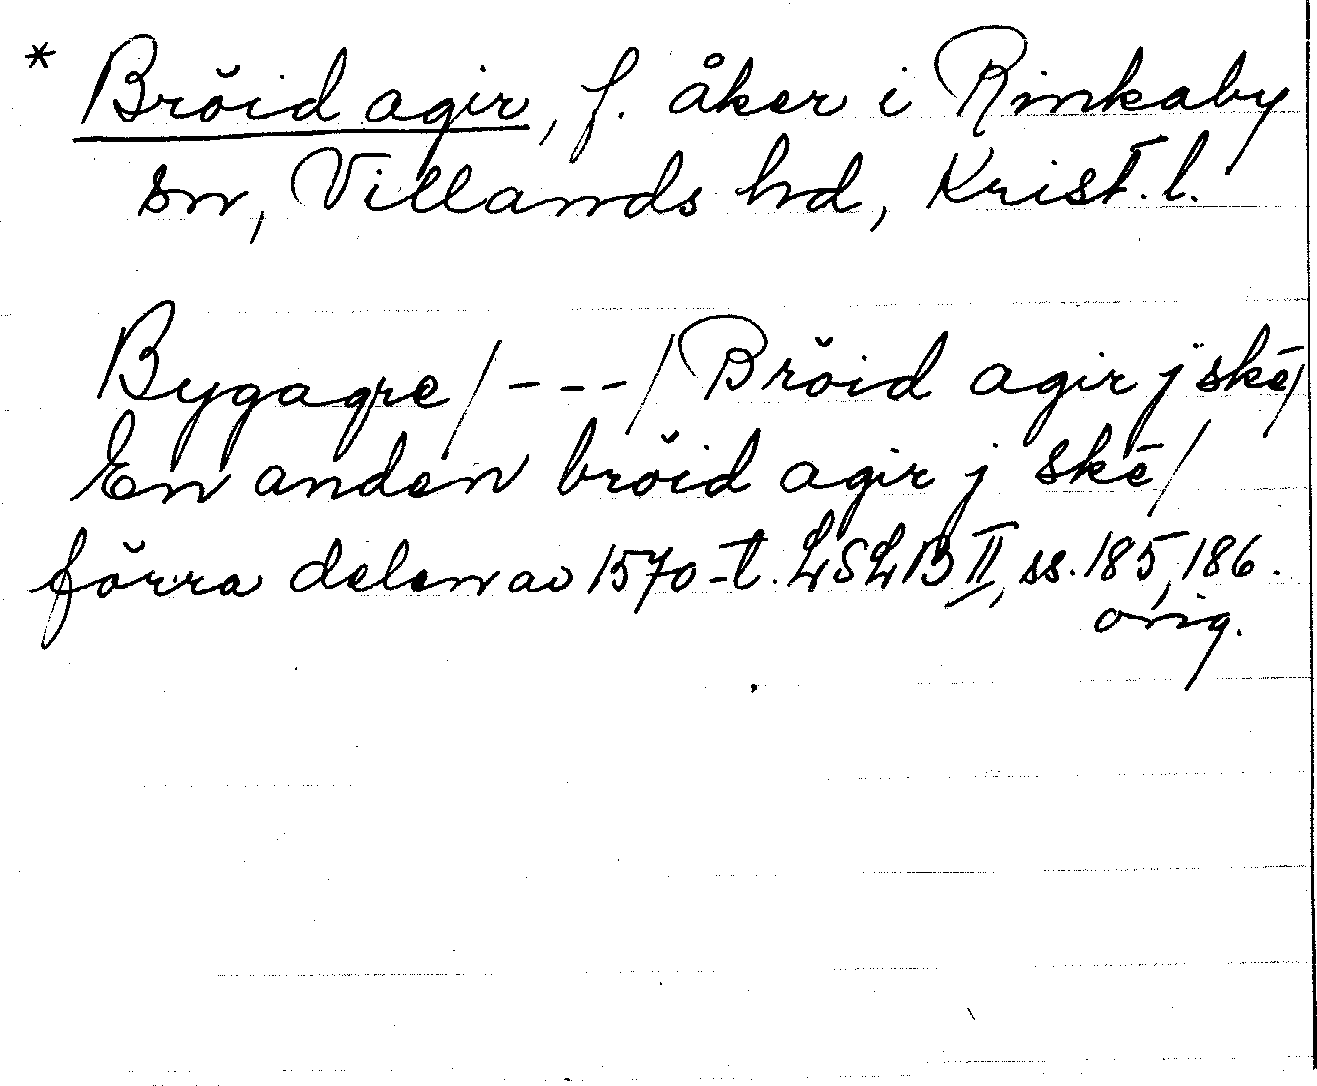 * Bröid agir, f. åker i Rinkaby
sn, Villands hd, Krist. l.
Bygagre /---/ Bröid agir j skē/
En anden bröid agir j skē/
förra delen av 1570-t. LSLB II, ss. 185, 186.
orig.